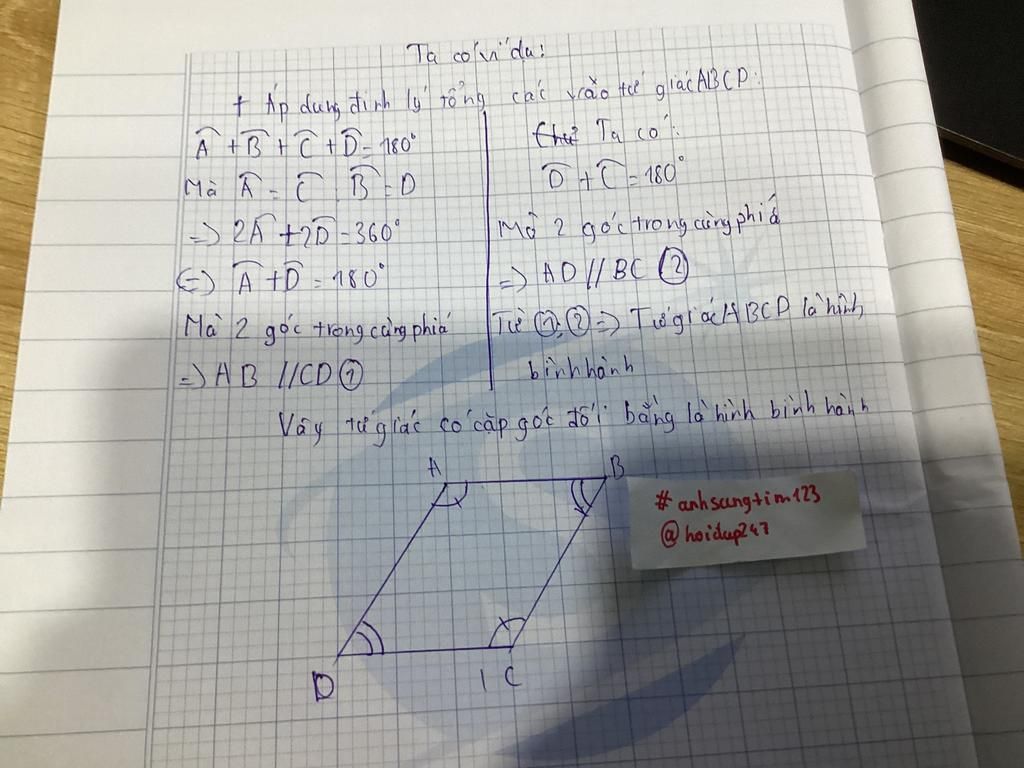 Ta có ví dụ:
+ Áp dụng định lý tổng các vào tứ giác ABCD:
Â + B̂ + Ĉ + D̂ = 180°
Mà Â = Ĉ B̂ = D
=> 2Â + 2D̂ = 360°
(=) Â + D̂ = 180°
Mà 2 góc trong cùng phiá
=> AB // CD ①
Ta có:
D̂ + Ĉ = 180°
Mà 2 góc trong cùng phiá
=> AD // BC ②
Từ ①, ② => Tứ giác ABCD là hình
bình hành
Vậy tứ giác có cặp góc đối bằng là hình bình hành
A
B
# anhsungtim123
@hoidap247
D
C